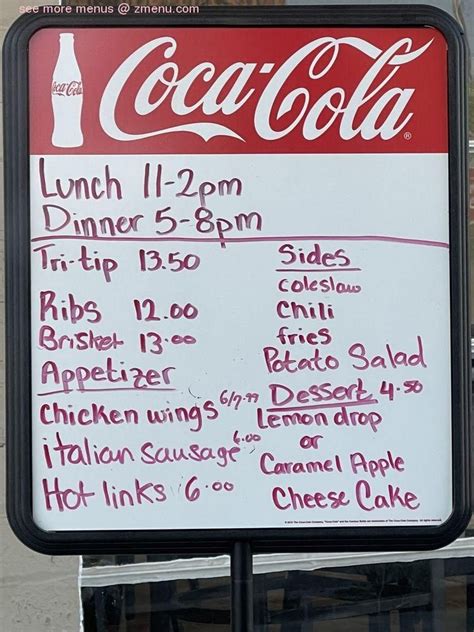 see more menus @ zmenu.com
Coca-Cola
Coca-Cola ®
Lunch 11-2pm
Dinner 5-8pm
Tri-tip 13.50
Ribs 12.00
Brisket 13.00
Appetizer
Chicken wings 6/7.99
italian sausage 6.00
Hot links 6.00
Sides
coleslaw
Chili
fries
Potato Salad
Dessert 4.50
Lemon drop
or
Caramel Apple
Cheese Cake